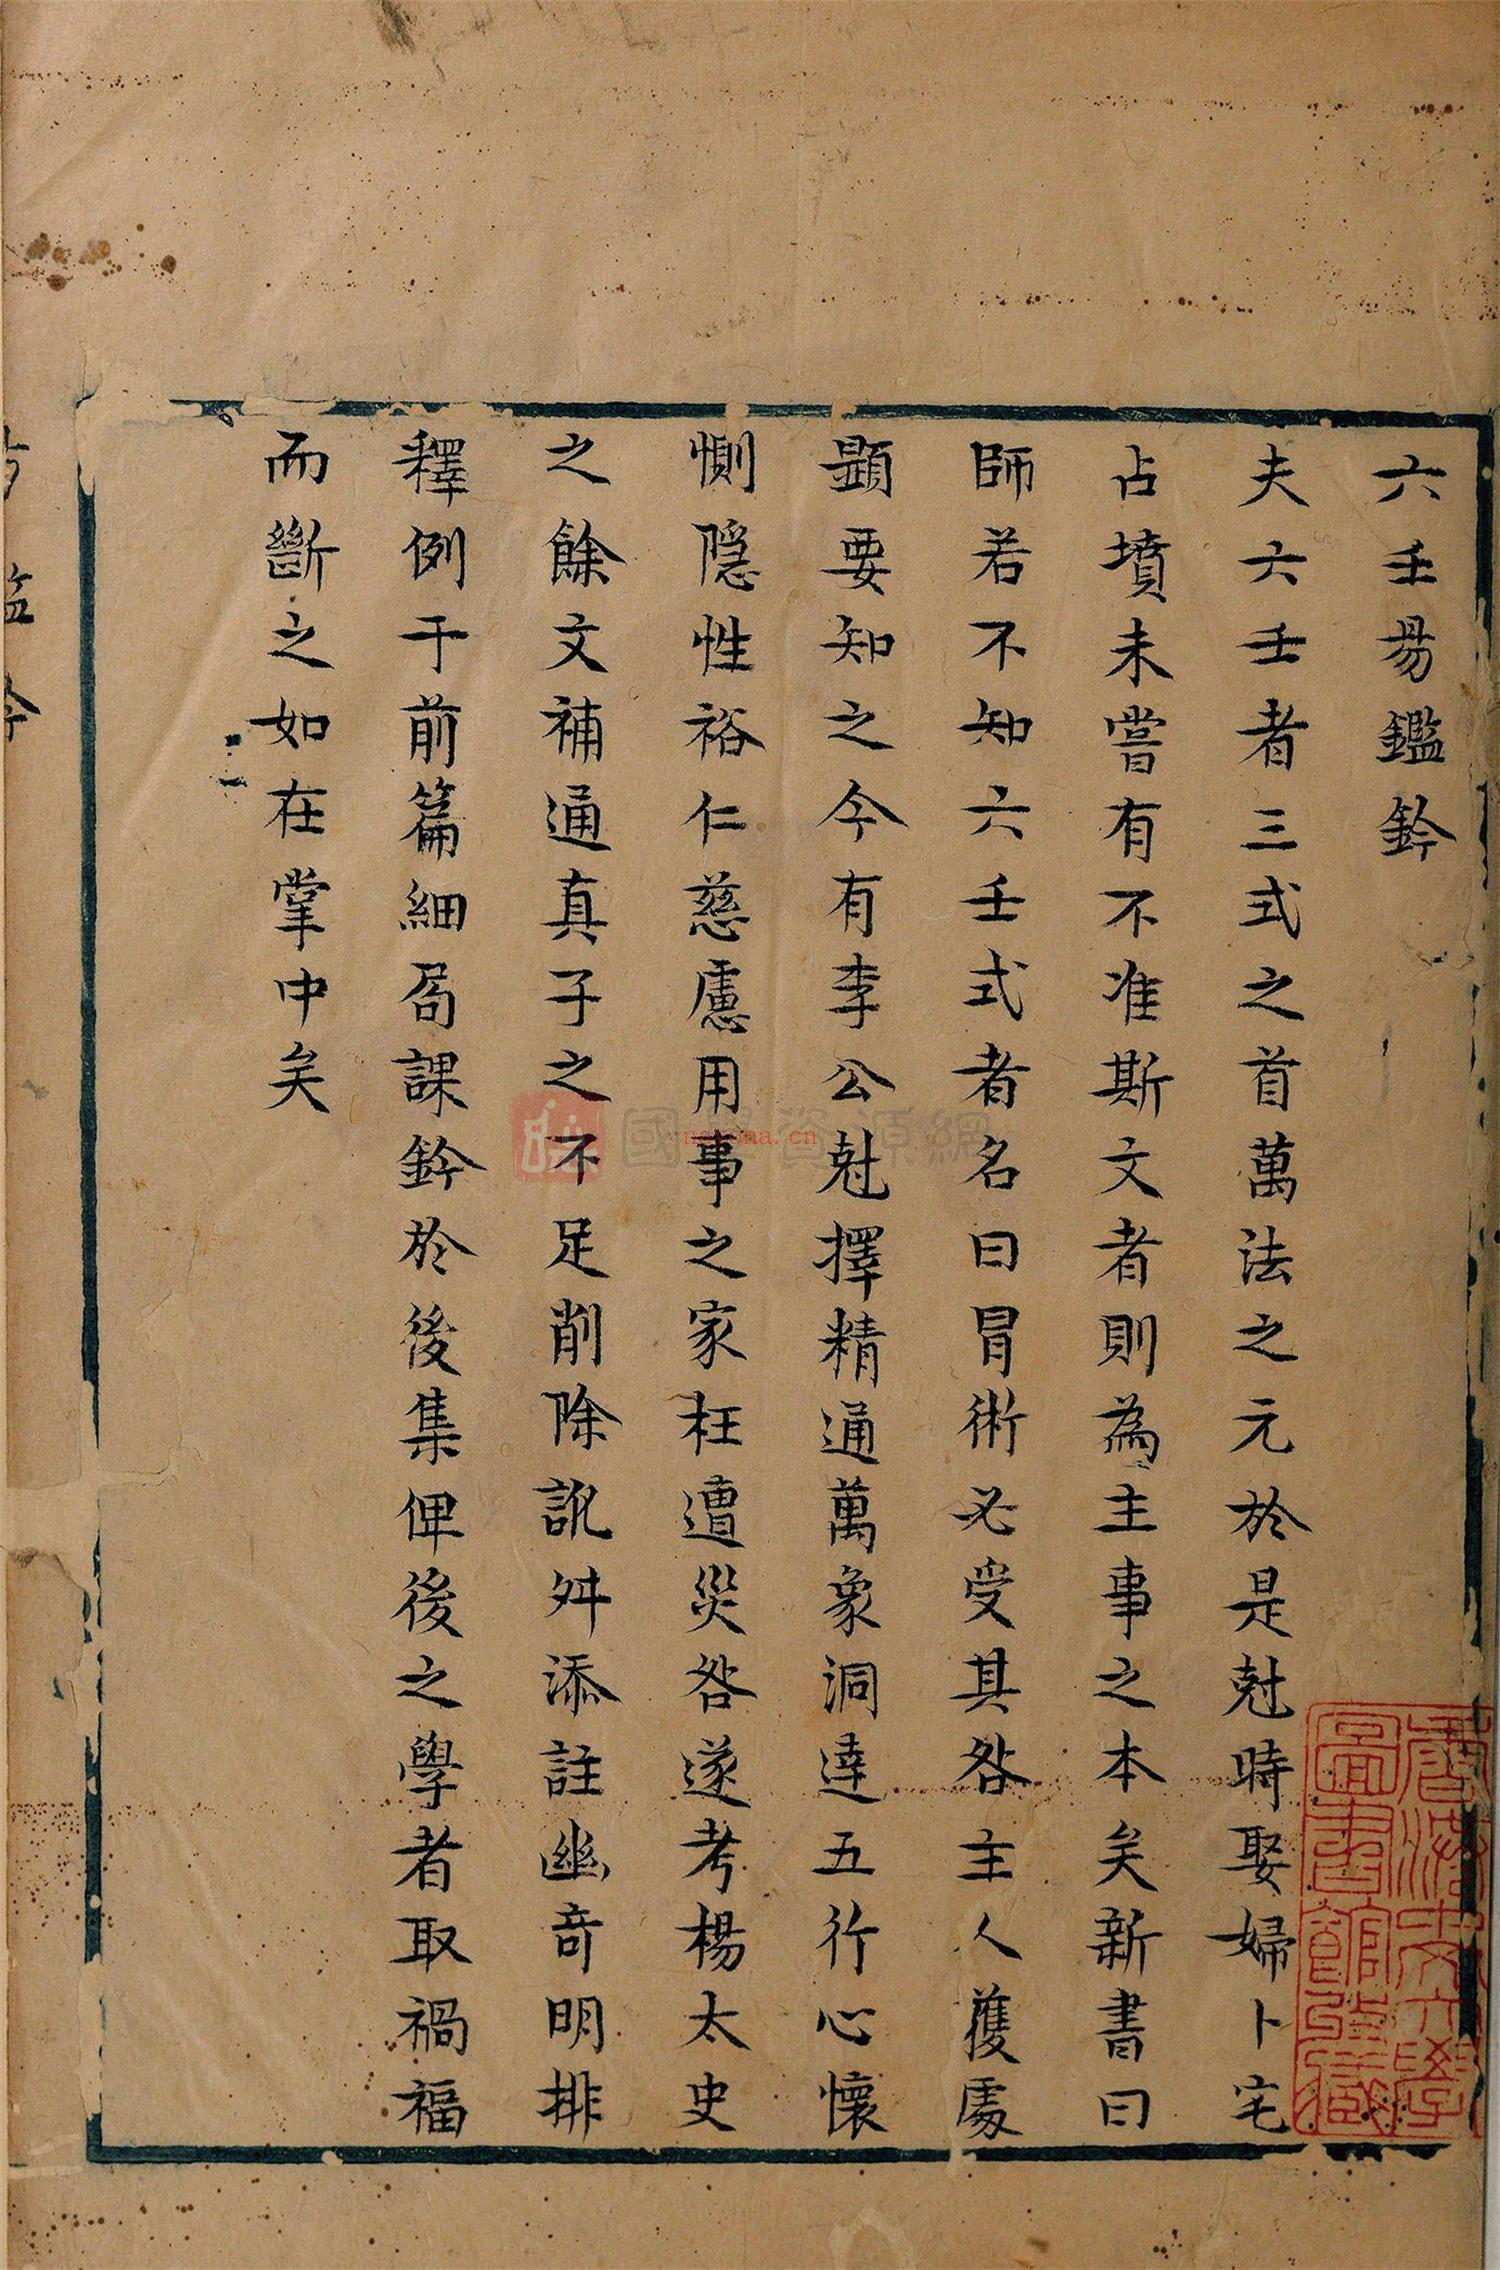 六壬昜鑑鈐
夫六壬者三式之首萬法之元於是尅時娶婦卜宅
占墳未嘗有不准斯文者則為主事之本矣新書曰
師若不知六壬式者名曰冒術必受其咎主人獲處
題要知之今有李公尅擇精通萬象洞達五行心懷
惻隠性裕仁慈慮用事之家枉遭災咎遂考楊太史
之餘文補通真子之不足削除訛舛添註幽奇明排
釋例于前篇細局課鈐於後集俾後之學者取禍福
而斷之如在掌中矣
國學資源網
nayona.cn
圖書館珍藏